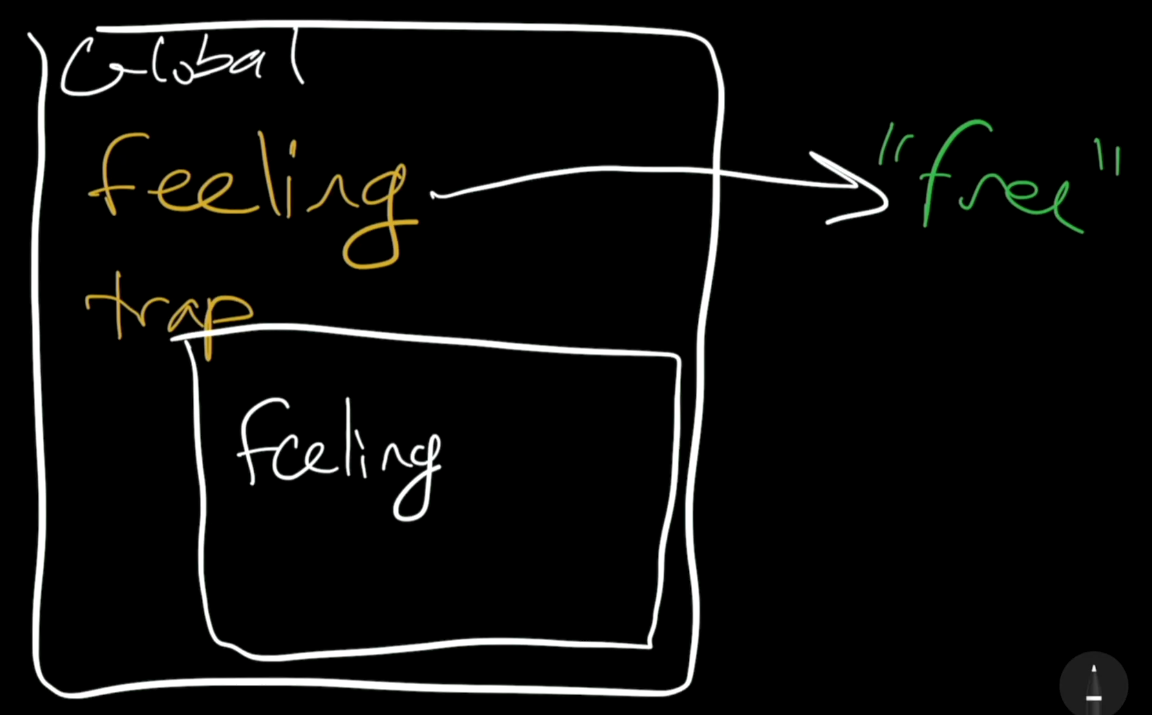 Global
feeling "free"
trap
feeling